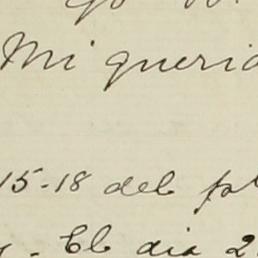 Mi querid
15-18 del p
El dia 2